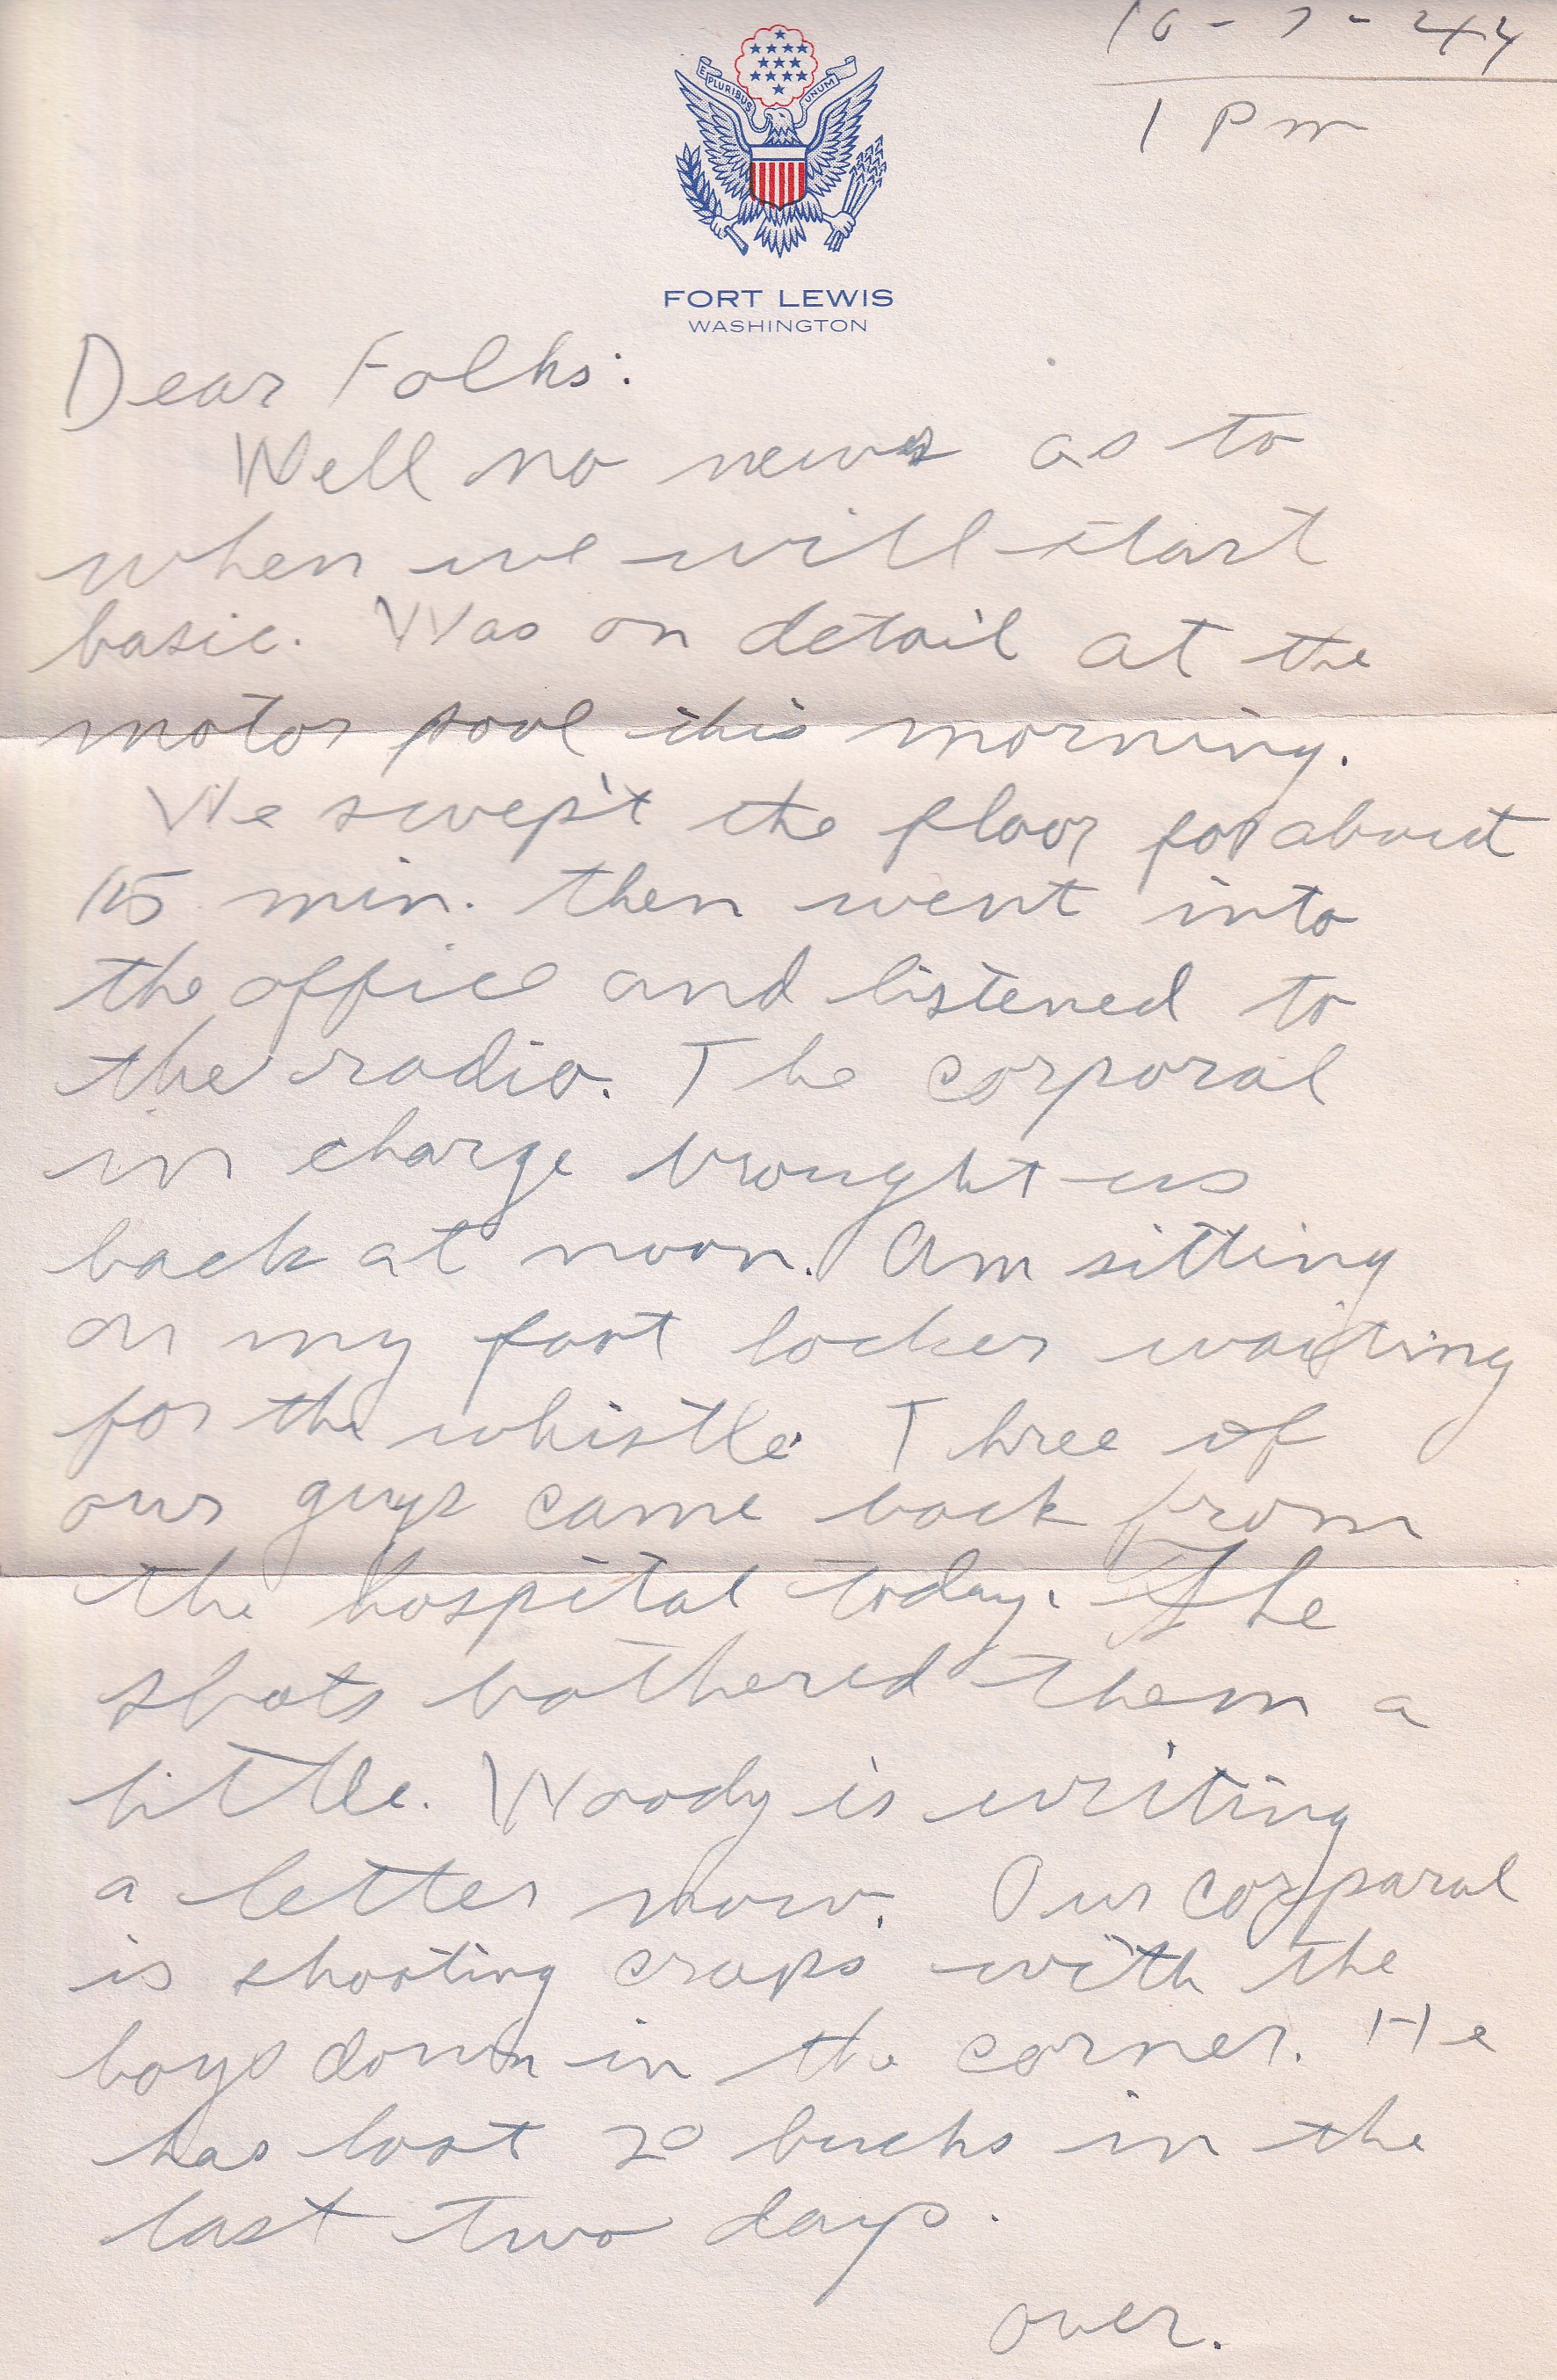 10-7-44
1 Pm
E PLURIBUS UNUM
FORT LEWIS
WASHINGTON
Dear Folks:
Well no news as to
when we will start
basic. Was on detail at the
motor pool this morning.
We swept the floor for about
15 min. then went into
the office and listened to
the radio. The corporal
in charge brought us
back at noon. Am sitting
on my foot locker waiting
for the whistle. Three of
our guys came back from
the hospital today. The
shots bothered them a
little. Woody is writing
a letter now. Our corporal
is shooting craps with the
boys down in the corner. He
has lost 20 bucks in the
last two days.
over.